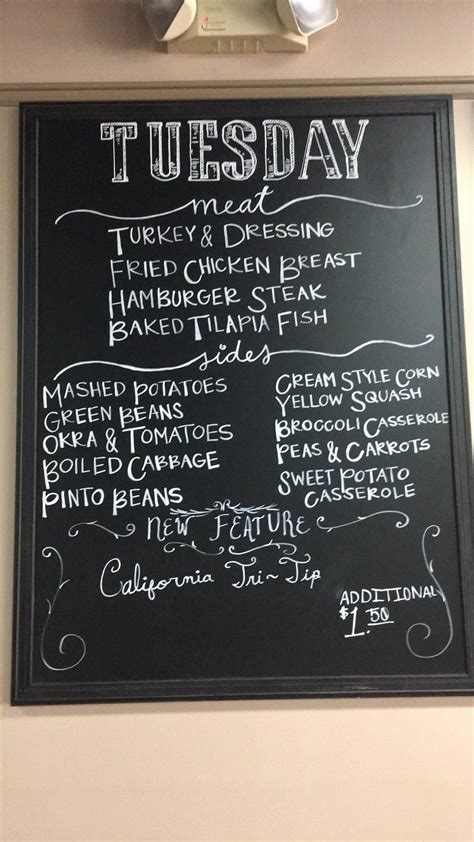 TUESDAY
meat
TURKEY & DRESSING
FRIED CHICKEN BREAST
HAMBURGER STEAK
BAKED TILAPIA FISH
sides
MASHED POTATOES
GREEN BEANS
OKRA & TOMATOES
BOILED CABBAGE
PINTO BEANS
CREAM STYLE CORN
YELLOW SQUASH
BROCCOLI CASSEROLE
PEAS & CARROTS
SWEET POTATO
CASSEROLE
NEW FEATURE
California Tri-Tip
ADDITIONAL
$1.50